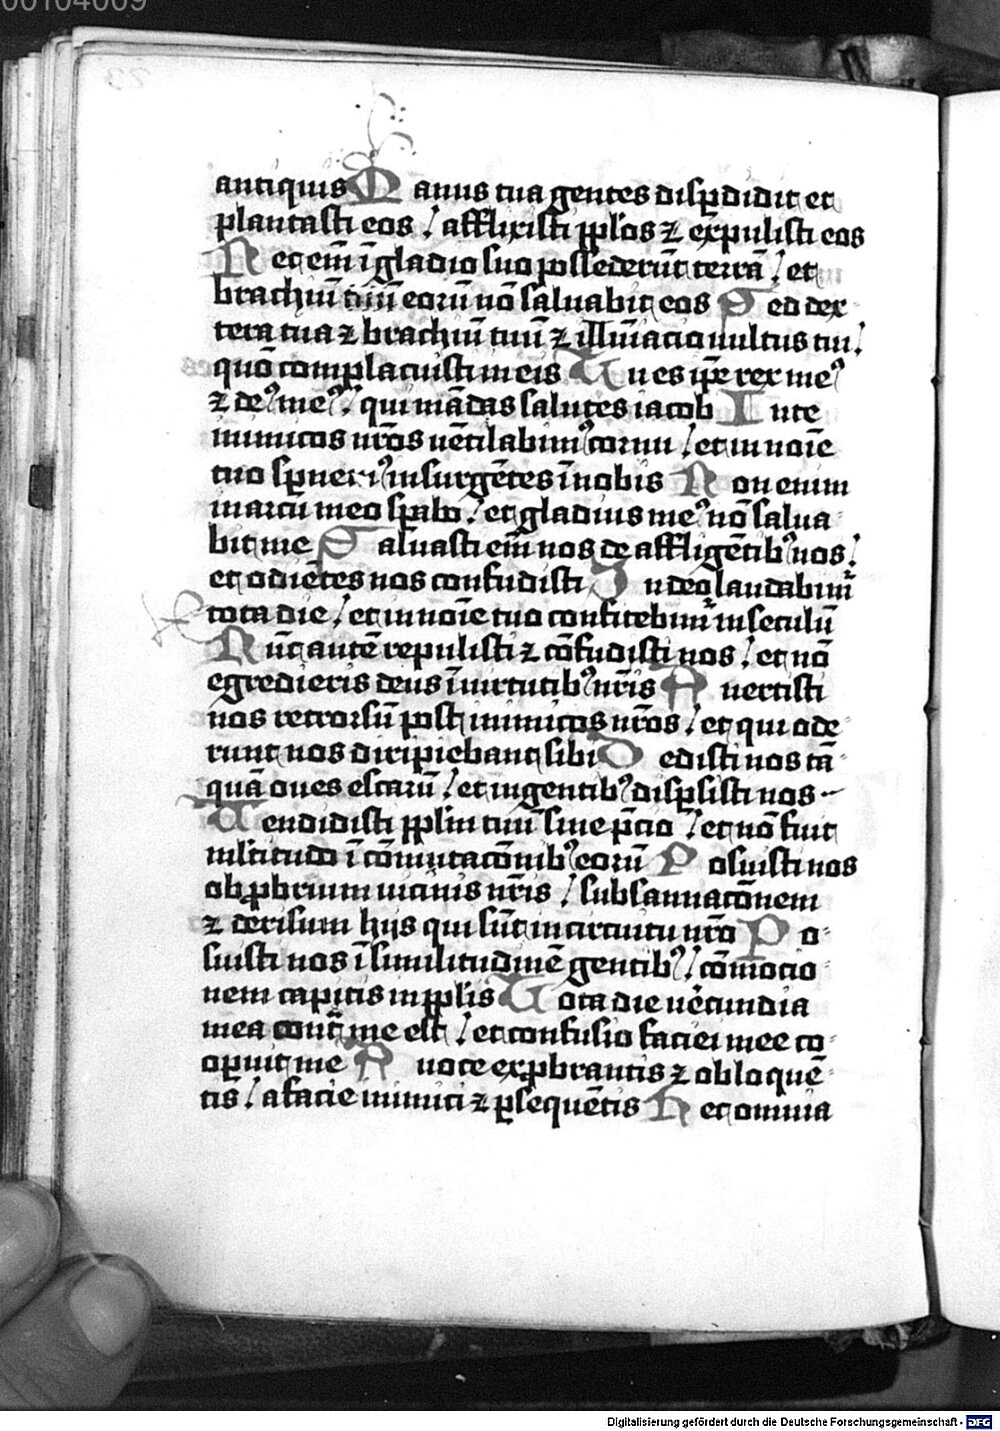 00104009
antiquis Manus tua gentes disp̄didit et
plantasti eos / afflixisti pp̄los ⁊ expulisti eos
Nec em̄ ī gladio suo possederūt terrā / et
brachiū tuū eorū nō saluabit eos Sed dex-
tera tua ⁊ brachiū tuū ⁊ illūīacio uultus tui /
quō complacuisti in eis Tu es ip̄e rex meꝰ
⁊ deꝰ meꝰ / qui mādas salutes iacob In te
inimicos nr̄os uētilabimꝰ cornu / et in noīe
tuo insurgētes ī nobis Non enim
in arcu meo sp̄abo / et gladius meꝰ nō salua-
bit me Saluasti em̄ nos de affligētibꝰ nos /
et odiētes nos confudisti In deo laudabimr̄
tota die / et in noīe tuo confitebimr̄ in seculū
Nūc autē repulisti ⁊ cōfudisti nos / et nō
egredieris deus ī uirtutibꝰ nr̄is Auertisti
nos retrorsū post inimicos nr̄os / et qui ode-
runt nos diripiebant sibi Dedisti nos tā-
quā oues escarū / et in gentibꝰ disp̄sisti nos
Uendidisti pp̄lm tuū sine p̄cio / et nō fuit
ml̄titudo ī cōmutacōnibꝰ eorū Posuisti nos
obp̄brium uicinis nr̄is / subsannacōnem
⁊ derisum hijs qui sūt in circuitu nr̄o Po-
suisti nos ī similitudinē gentibꝰ / cōmocio-
nem capitis in pp̄lis Tota die uēcundia
mea cont̄ me est / et confusio faciei mee co-
op̄uit me A uoce exp̄brantis ⁊ obloquē-
tis / a facie inimici ⁊ p̄sequētis Hec omnia
Digitalisierung gefördert durch die Deutsche Forschungsgemeinschaft - DFG